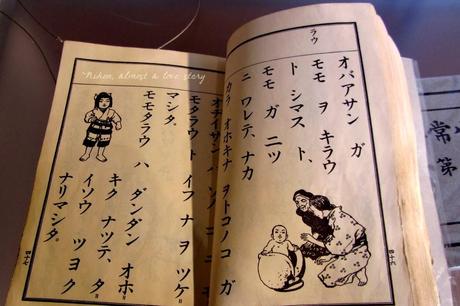 ラウ
オバアサン ガ
モモ ヲ キラウ
ト シマスト、
モモ ガ 二ツ
ニ ワレテ、ナカ
カラ オホキナ ヲトコノコ ガ
四十六
モモタラウ ト イフ ナ ヲ ツケ
マシタ。
モモタラウ ハ
ダンダン オホ
キク ナツテ、タ
イソウ ツヨク
ナリマシタ。
四十七
Nihon, almost a love story
常
第